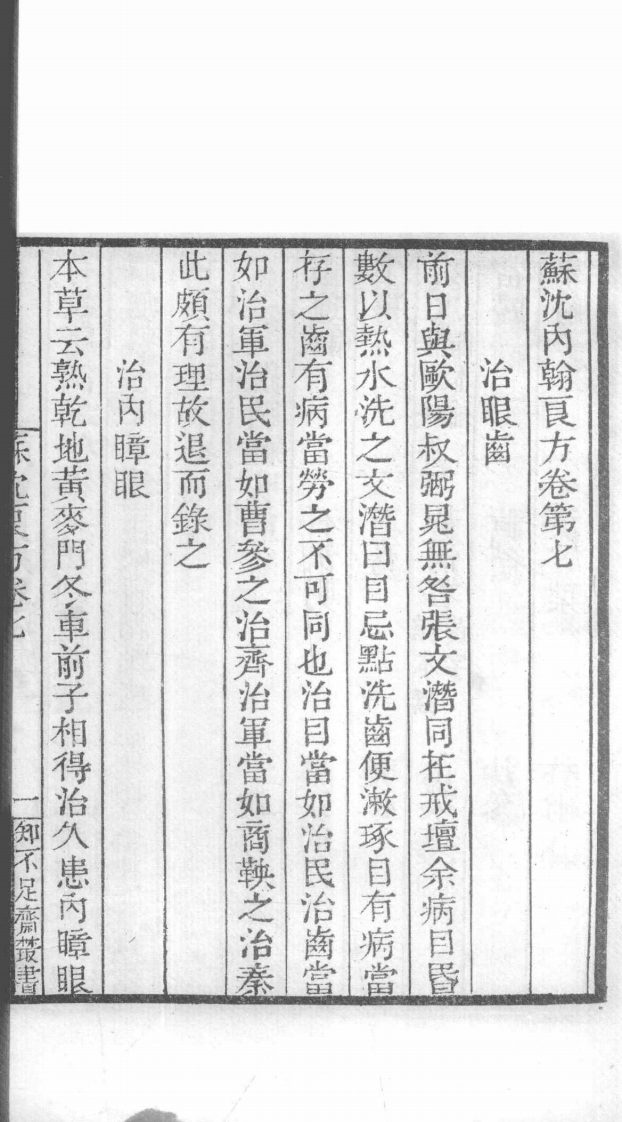 蘇沈內翰良方卷第七
治眼齒
前日與歐陽叔弼晁無咎張文潛同在戒壇余病目昬
數以熱水洗之文潛曰目忌點洗齒便漱琢目有病當
存之齒有病當勞之不可同也治目當如治民治齒當
如治軍治民當如曹參之治齊治軍當如商鞅之治秦
此頗有理故退而錄之
治內瞕眼
本草云熟乾地黃麥門冬車前子相得治久患內瞕眼
蘇沈良方卷七
一
知不足齋叢書